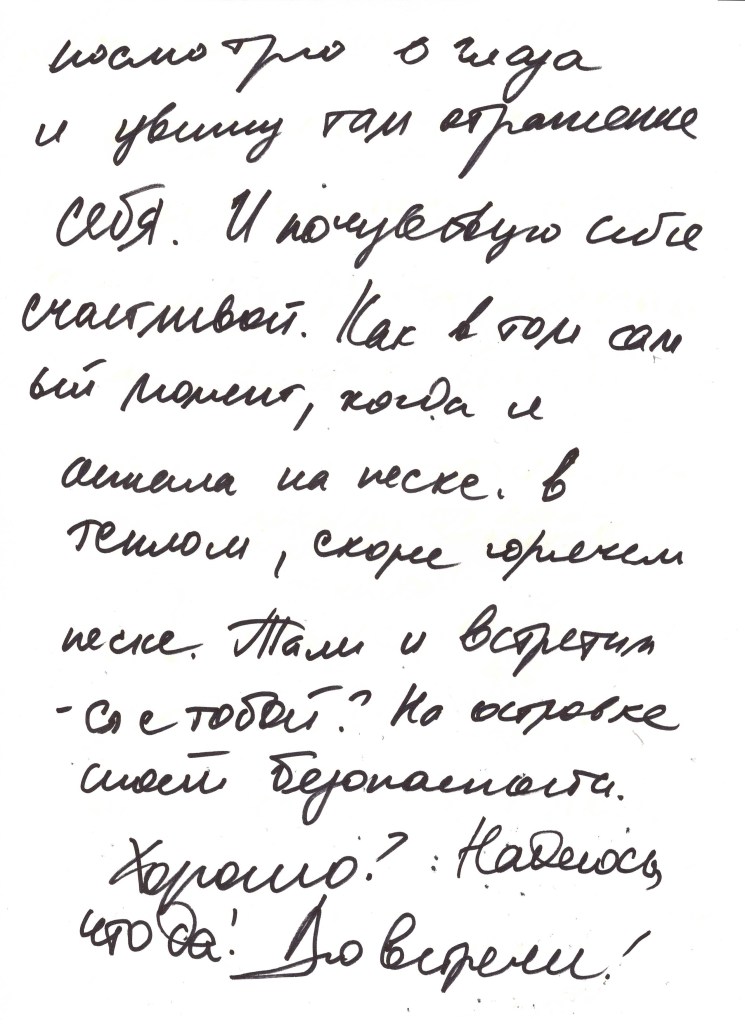 посмотрю в глаза
и увижу там отражение
себя. И почувствую себя
счастливой. Как в том сам
ый момент, когда я
лежала на песке. В
теплом, скорее горячем
песке. Там и встретим
-ся с тобой? На островке
моей безопасности.
Хорошо? Надеюсь,
что да! До встречи!